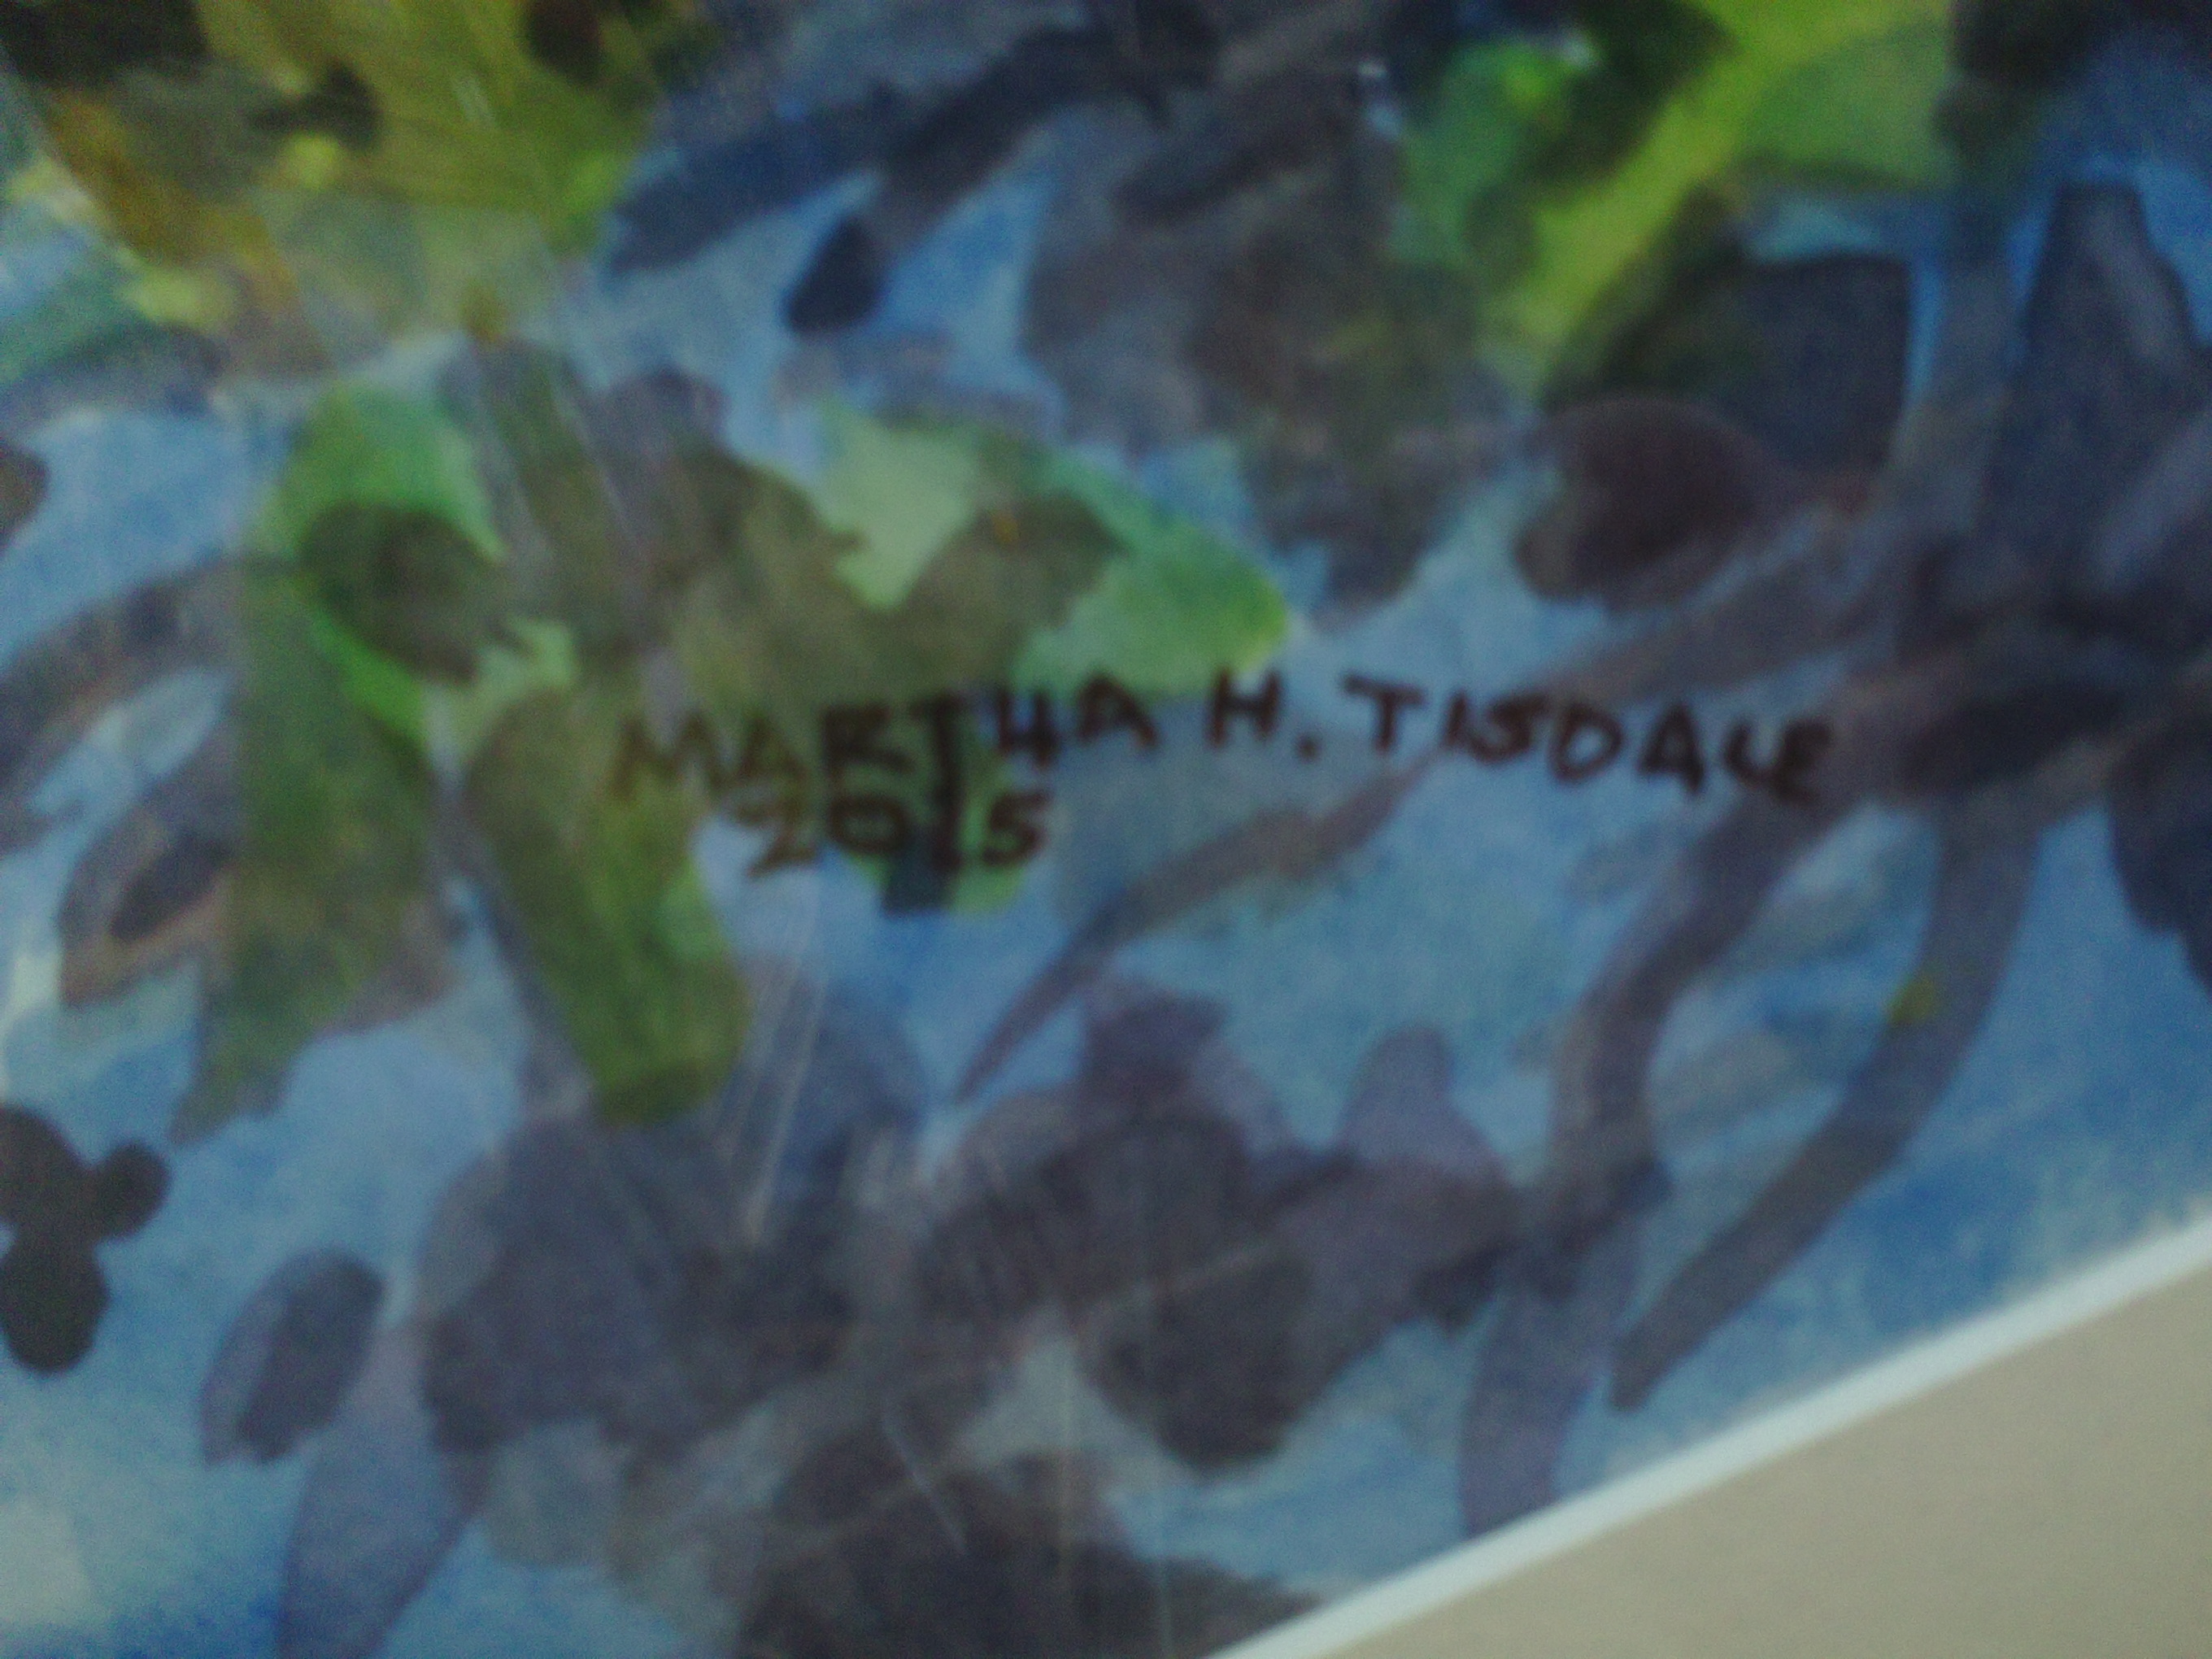 MARTHA H. TISDALE
2015